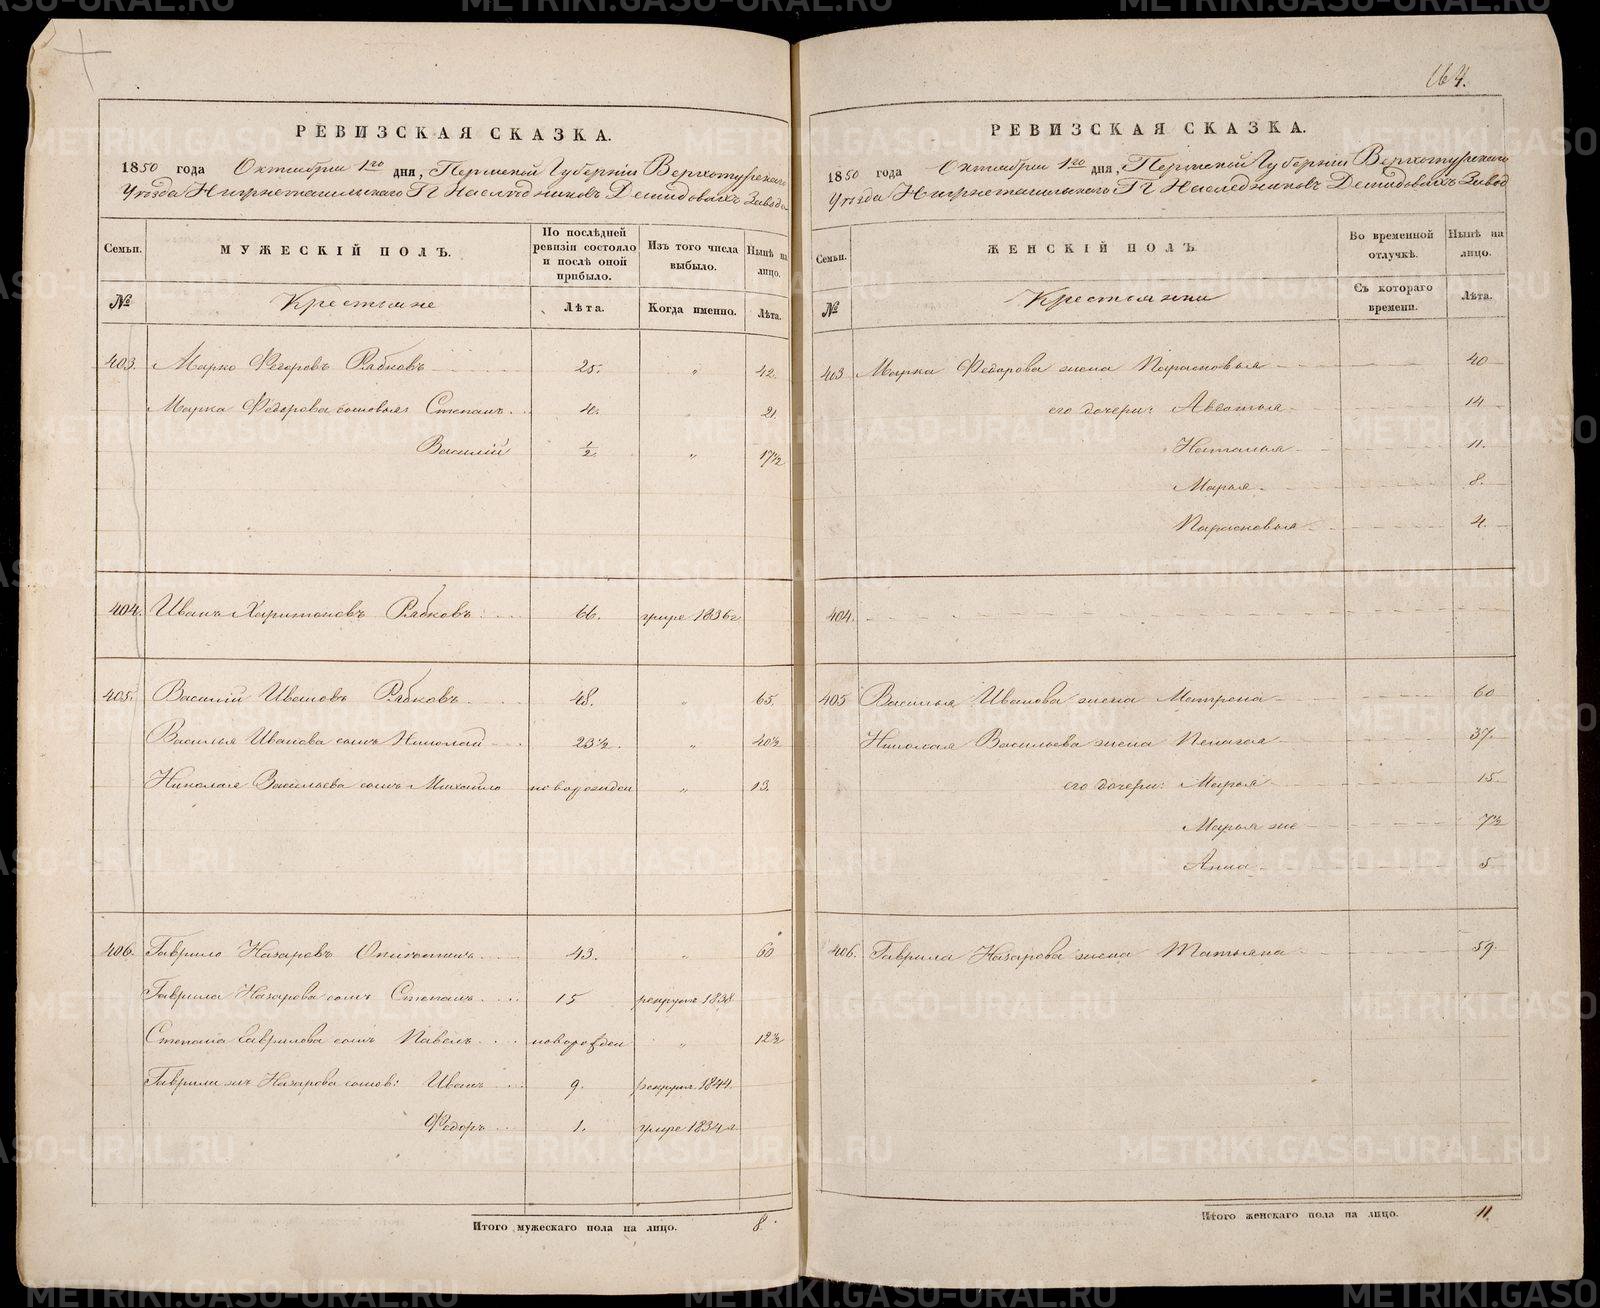 РЕВИЗСКАЯ СКАЗКА.
1850 года Октября 1го дня, Пермской Губернiи Верхотурскаго
Уѣзда Нижнетагильскаго Гг Наслѣдниковъ Демидовыхъ Завода
Семьи. МУЖЕСКІЙ ПОЛЪ. По послѣдней ревизіи состояло и послѣ оной прибыло. Изъ того числа выбыло. Нынѣ на лицо.
№ Крестьяне Лѣта. Когда именно. Лѣта.
403. Марко Федоровъ Рябковъ 25. „ 42.
Марка Федорова сыновья: Степанъ 4. „ 21.
Василій 1/2. „ 17 1/2
404. Иванъ Харитоновъ Рябковъ 66. умре 1836г
405. Василій Ивановъ Рябковъ 48. „ 65.
Василья Иванова сынъ Николай 23 1/2. „ 40 1/2
Николая Васильева сынъ Михайло новорожден „ 13.
406. Гаврило Назаровъ 43. „ 60
Гаврила Назарова сынъ Степанъ 15 рекрутъ 1838
Степана Гаврилова сынъ Павелъ новорожден „ 12 1/2
Гаврилы жъ Назарова сынов: Иванъ 9. рекрутъ 1844.
Федоръ 1. умре 1834г
Итого мужескаго пола на лицо. 8.
164.
РЕВИЗСКАЯ СКАЗКА.
1850 года Октября 1го дня, Пермской Губернiи Верхотурскаго
Уѣзда Нижнетагильскаго Гг Наслѣдниковъ Демидовыхъ Завод
Семьи. ЖЕНСКІЙ ПОЛЪ Во временной отлучкѣ. Нынѣ на лицо.
№ Крестьянки Съ котораго времени. Лѣта.
403 Марка Федорова жена Парасковья 40
его дочери: Авдотья 14
Наталья 11.
Марья 8.
Парасковья 4.
404.
405 Василья Иванова жена Матрена 60
Николая Васильева жена Пелагея 37.
его дочери: Марья 15
Марья же 7 1/2
Анна 5
406. Гаврила Назарова жена Татьяна 59.
Итого женскаго пола на лицо. 11.
METRIKI.GASO-URAL.RU